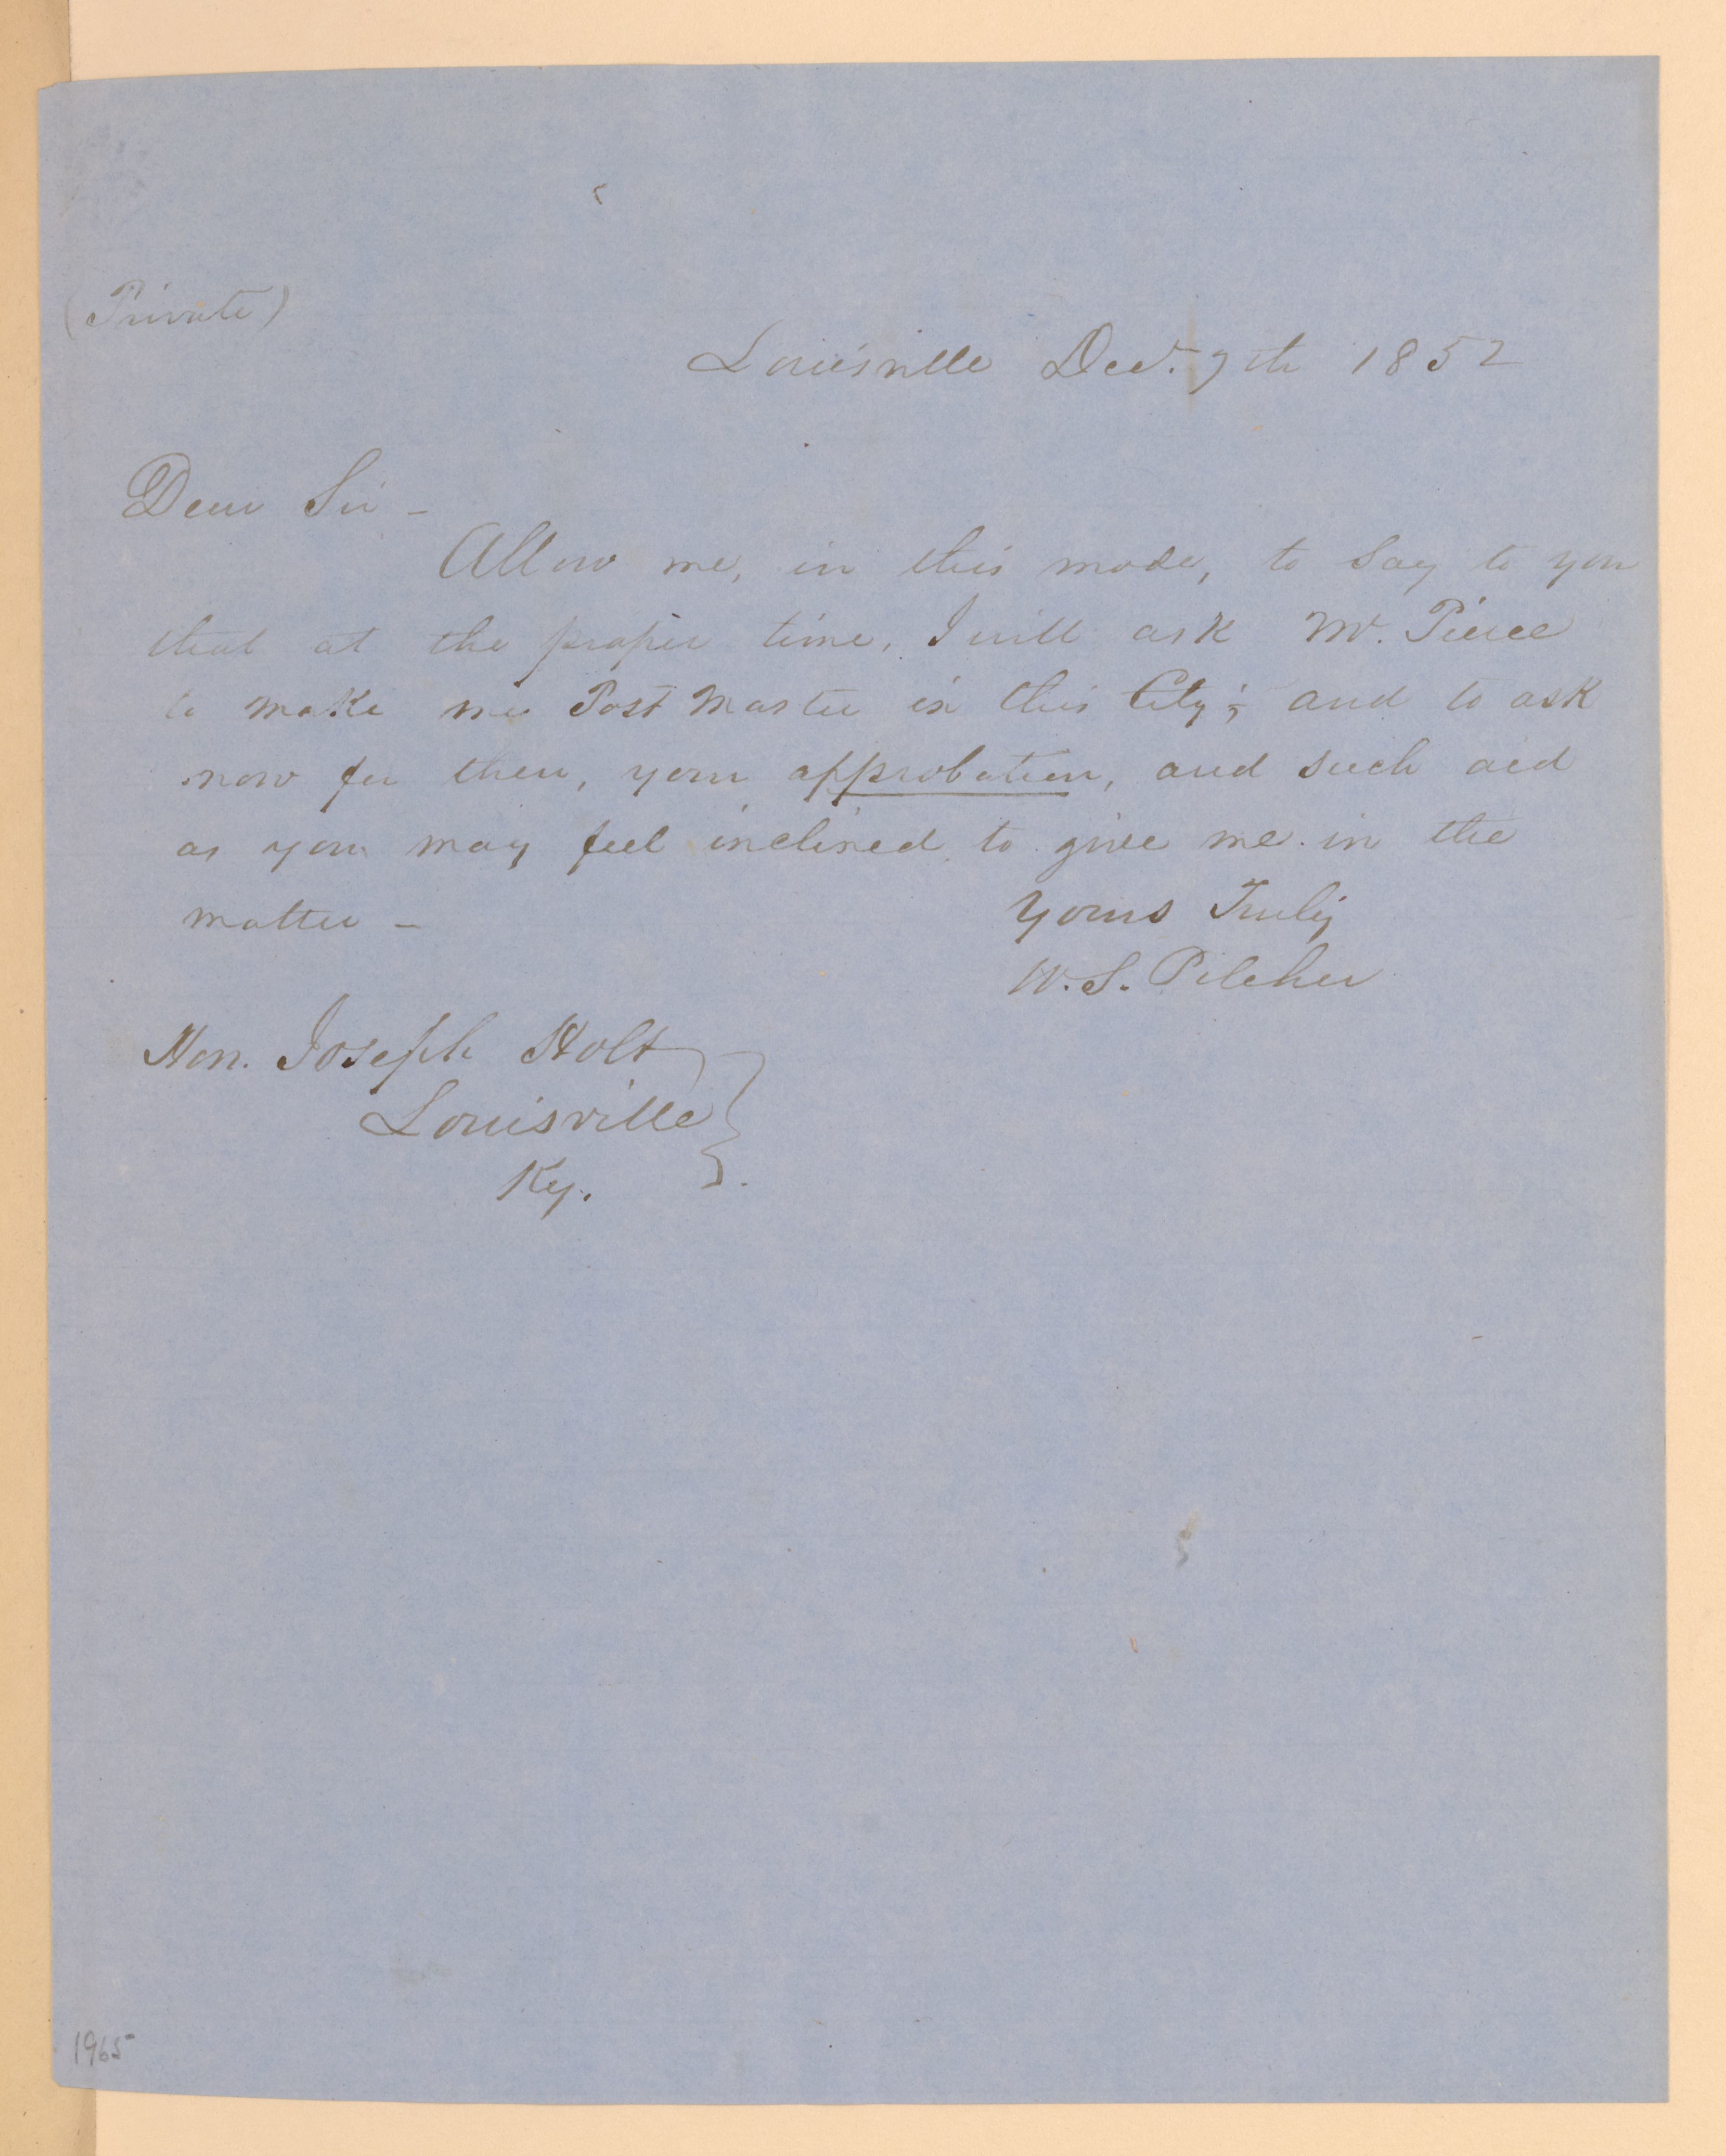 (Private)
Louisville Dec. 9th 1852
Dear Sir -
Allow me, in this mode, to say to you
that at the proper time, I will ask Mr. Pierce
to make me Post Master in this City; and to ask
now for then, your approbation, and such aid
as you may feel inclined to give me in the
matter -
Yours Truly
W. S. Pilcher
Hon. Joseph Holt
Louisville
Ky.
1965